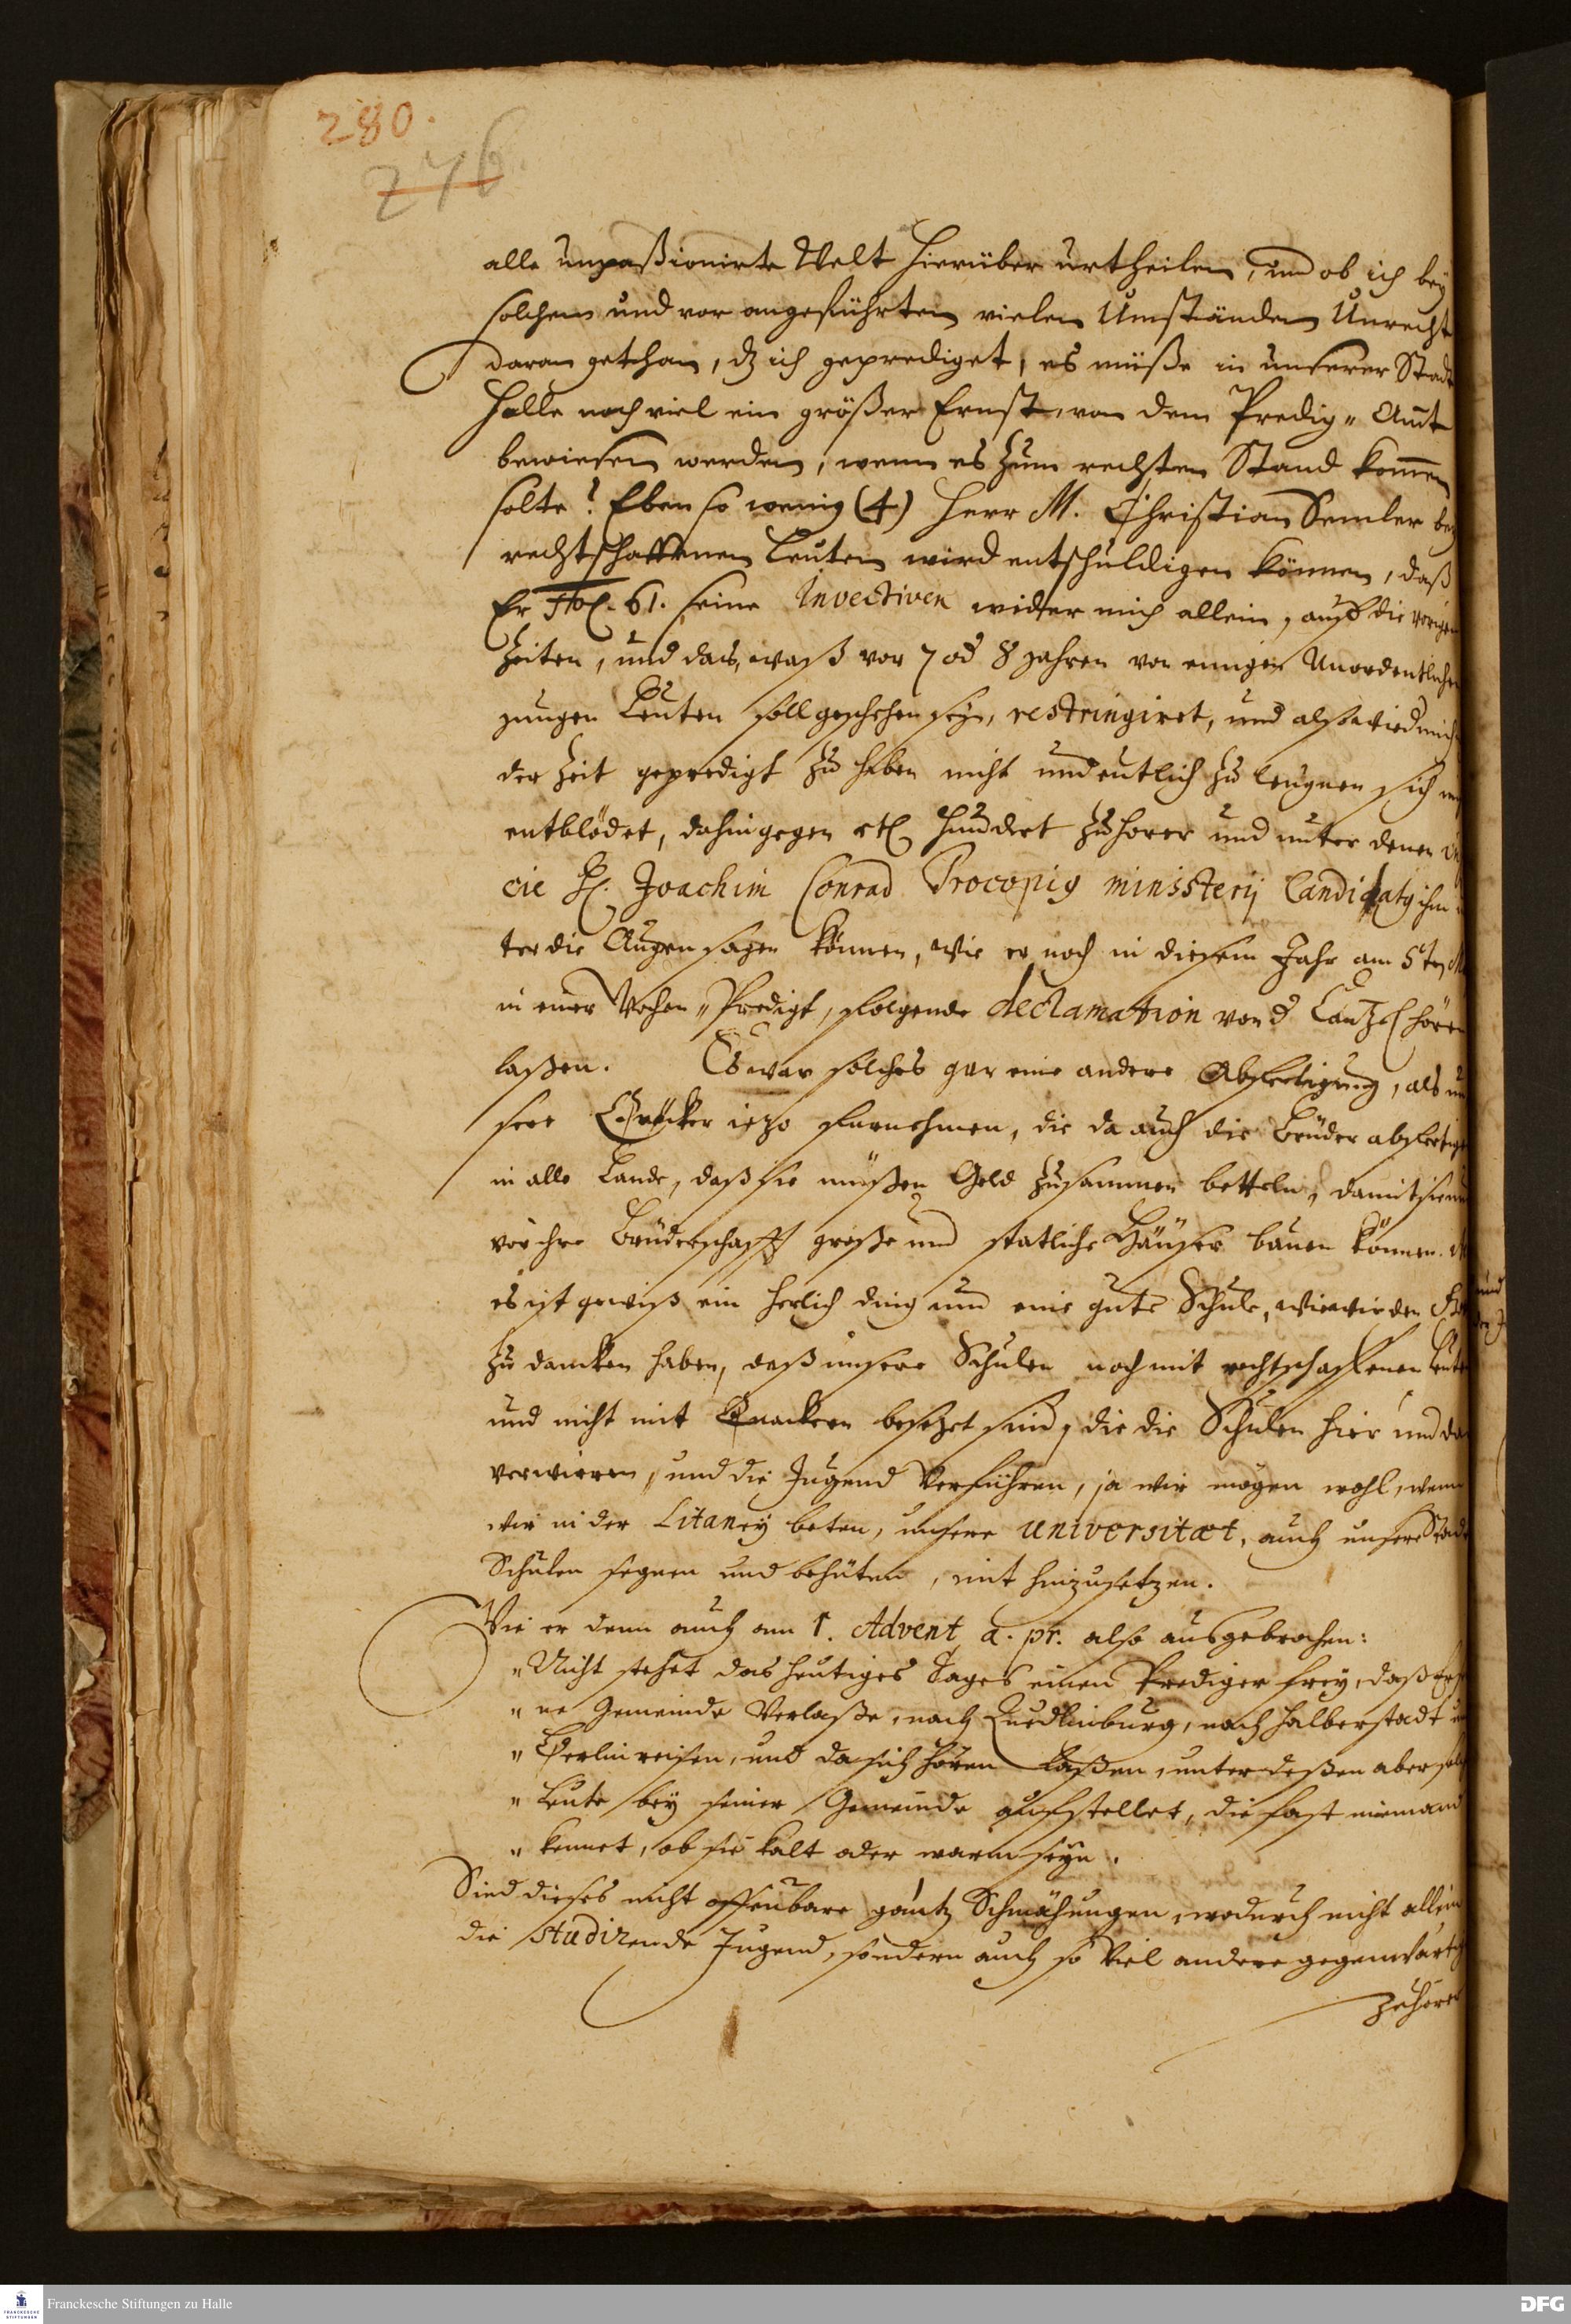 280.
276.
alle unpaßionirte Welt hierüber urtheilen, und ob ich bey
solchen und vor angeführten vielen Umständen Unrecht
daran gethan, dz ich geprediget, es müße in unserer Stadt
Halle noch viel ein größer Ernst, von dem Predig-Amt
bewiesen werden, wenn es zum rechten Stand kommen
solte? Eben so wenig (4) Herr M. Christian Semler bey
rechtschaffenen Leuten wird entschuldigen können, daß
Er 61. seine Invectiven wider mich allein, auf die vorigen
Zeiten, und das, waß vor 7 od 8 Jahren von einigen Unordentlichen
jungen Leuten soll geschehen seyn, restringiret, und also wied mich
der Zeit gepredigt zu haben nicht undeutlich zu leugnen sich
entblödet, dahingegen etl hundert Zuhörer und unter denen
cie H. Joachim Conrad Procopig ministerij Candidatg ihm
ter die Augen sagen können, wie er noch in diesem Jahr am 5ten
in einer Wochen-Predigt, folgende declamation von d Cantzel hören
laßen. Es war solches gar eine andere Abfertigung, als un
sere Qväcker iezo fürnehmen, die da auch die Brüder abfertigen
in alle Lande, daß sie müßen Geld zusammen betteln, damit sie nur
vor ihre Brüderschafft große und statliche Häuser bauen können.
es ist gewiß ein herlich ding um eine gute Schule, wie wir den
zu dancken haben, daß unsere Schulen noch mit rechtschaffenen Leuten
und nicht mit Quackern besetzet sind, die die Schulen hier und da
verwirren, und die Jugend verführen, ja wir mögen wohl, wenn
wir in der Litaney beten, unsere Universitæt, auch unsere Stadt
Schulen segnen und behüten, mit hinzusetzen.
Wie er denn auch am 1. Advent a. pr. also ausgebrochen:
" Nicht stehet das heutiges Tages einen Prediger frey, daß er sei
" ne Gemeinde verlaße, nach Quedlinburg, nach Halberstadt
" Berlin reisen, und da sich hören laßen, unterdeßen aber solche
" Leute bey seiner Gemeinde aufstellet, die fast niemand
" kennet, ob sie kalt oder warm seyn.
Sind dieses nicht offenbare gantz Schmähungen, wodurch nicht allein
die studirende Jugend, sondern auch so viel andere gegenwärtige
Zuhörer
Franckesche Stiftungen zu Halle
DFG